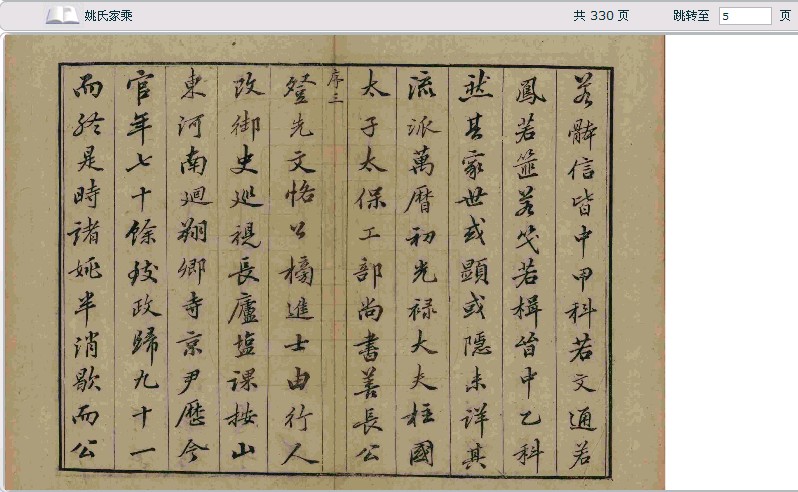 姚氏家乘
共 330 页
跳转至 5 页
若龢信皆中甲科若文通若
鳳若簉若笺若楫皆中乙科
然其家世或顯或隱未詳其
流派萬曆初光禄大夫柱國
太子太保工部尚書善長公
序三
登先文恪公榜進士由行人
改御史廵視長廬塩課按山
東河南廻翔卿寺京尹歷今
官年七十餘致政歸九十一
而終是時諸姚半消歇而公